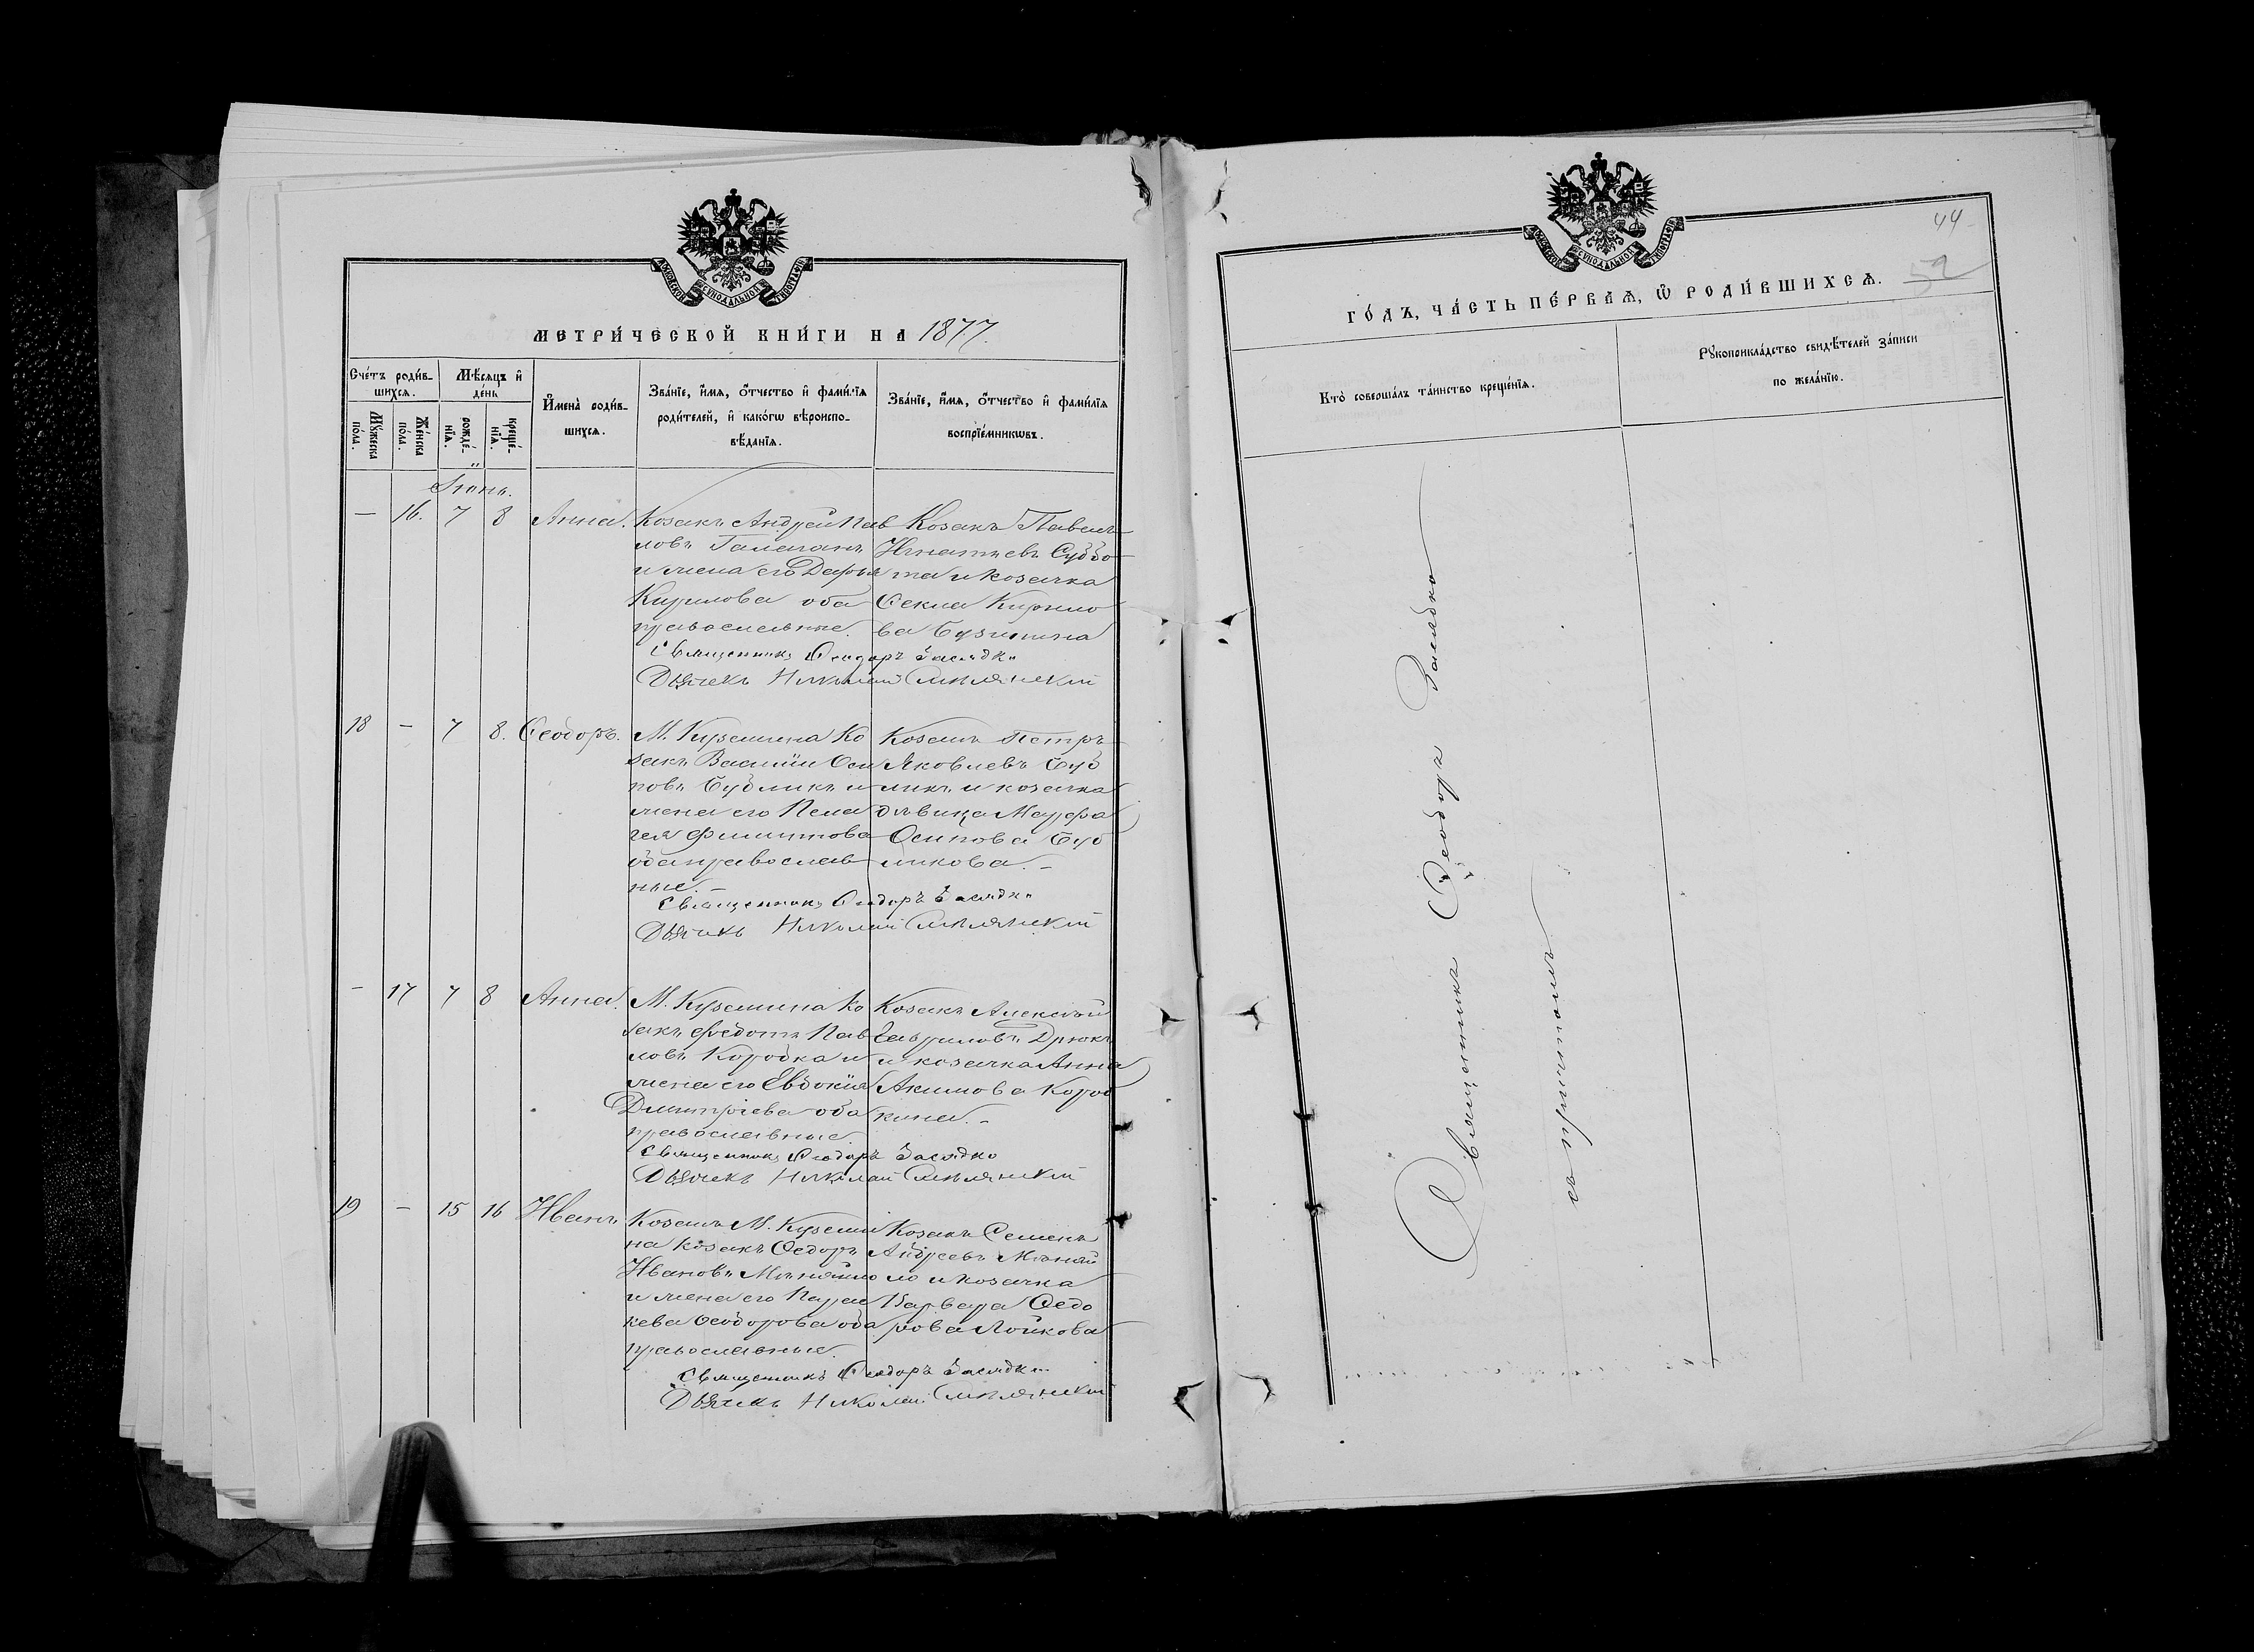 МОСКОВСКОЙ СѴНОДАЛЬНОЙ ТИПОГРАФІИ
МЕТРИ́ЧЕСКОЙ КНИ́ГИ НА 1877.
Сче́тъ роди́в-
шихсѧ.
Мѣ́сѧцъ и҆
де́нь
И҆мена̀ роди́в-
шихсѧ.
Зва́нїе, и҆́мѧ, ѻ҆́тчество и҆ фами́лїѧ
роди́телей, и҆ како́гѡ вѣроиспо-
вѣ́данїѧ.
Зва́нїе, и҆́мѧ, ѻ҆́тчество и҆ фами́лїѧ
воспрїе́мникѡвъ.
Мꙋ́жеска
по́ла.
Же́нска
по́ла.
рожде́-
нїѧ.
креще́-
нїѧ.
Іюнь.
— 16. 7 8 Анна. Козакъ Андрей Пав
ловъ Галаганъ
и жена его Дарья
Кирилова оба
православные.
Козакъ Павелъ
Игнатьевъ Суббо
та и козачка
Ѳекла Кирило
ва
Священникъ Ѳеодоръ Засядко
Дьячекъ Николай Смѣлянскій
18 — 7 8. Ѳеодоръ. М. Куземина Ко
закъ Василій Оси
повъ Бубликъ и
жена его Пела
гея Филиппова
оба православ
ные. —
Козакъ Петръ
Яковлевъ Буб
ликъ и козачка
дѣвица Марфа
Осипова Буб
ликова. —
Священникъ Ѳеодоръ Засядко
Дьячекъ Николай Смѣлянскій
— 17 7 8 Анна. М. Куземина Ко
закъ Федотъ Пав
ловъ Коробка и
жена его Евдокія
Дмитріева оба
православные.
Козакъ Алексѣй
Гавриловъ Дрюкъ
и козачка Анна
Акимова Короб
кина. —
Священникъ Ѳеодоръ Засядко
Дьячекъ Николай Смѣлянскій
19 — 15 16 Иванъ Козакъ М. Куземи
на козакъ Ѳедоръ
Ивановъ Мѣняйло
и жена его Парас
кева Ѳеодорова оба
православные.
Козакъ Семенъ
Андреевъ Мѣняй
ло и козачка
Варвара Ѳедо
рова Лойкова
Священникъ Ѳеодоръ Засядко
Дьячекъ Николай Смѣлянскій
44
52
МОСКОВСКОЙ СѴНОДАЛЬНОЙ ТИПОГРАФІИ
ГО́ДЪ, ЧА́СТЬ ПЕ́РВАѦ, Ѡ҆ РОДИ́ВШИХСѦ.
Кто̀ соверша́лъ та́инство креще́нїѧ.
Рꙋкоприкла́дство свидѣ́телей за́писи
по жела́нїю.
Священникъ Ѳеодоръ Засядко
съ причтомъ